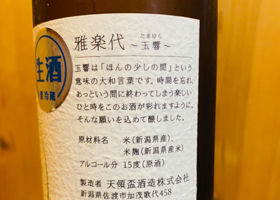 雅楽代
たまゆら
～玉響～
玉響は「ほんの少しの間」という
意味の大和言葉です。時間を忘れ、
あっという間に終わってしまう楽しい
ひと時をこのお酒が彩れますように。
そんな願いを込めて醸しました。
原材料名 米(新潟県産)、
米麹(新潟県産米)
アルコール分 15度(原酒)
製造者 天領盃酒造株式会社
新潟県佐渡市加茂歌代458
生酒
要冷蔵